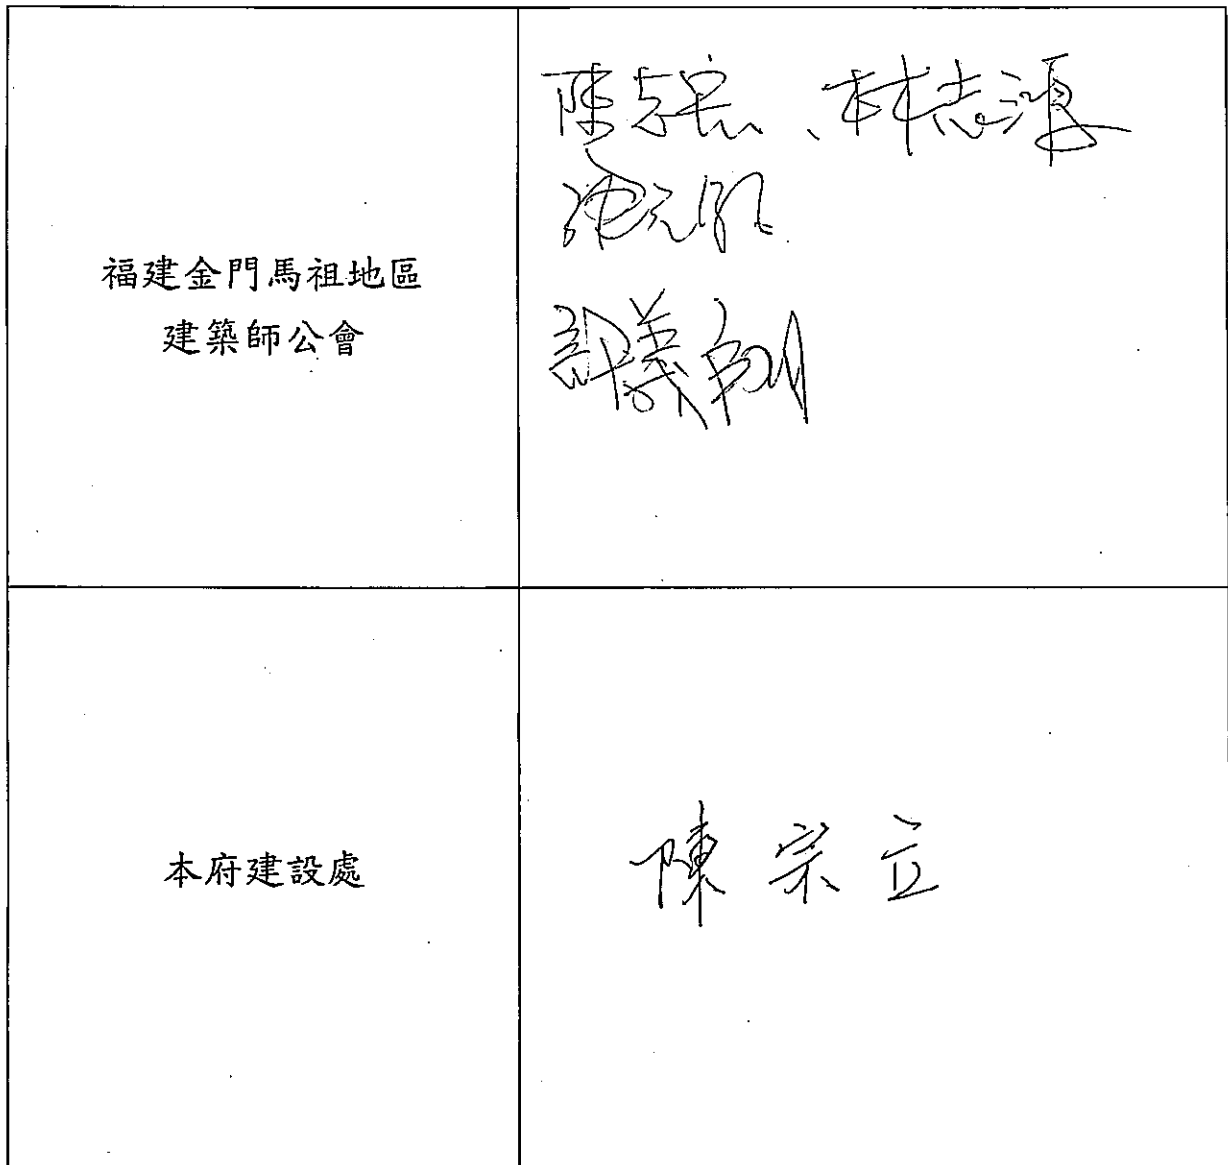 福建金門馬祖地區
建築師公會
陳志宏、林志鴻
許義明
本府建設處
陳宗立